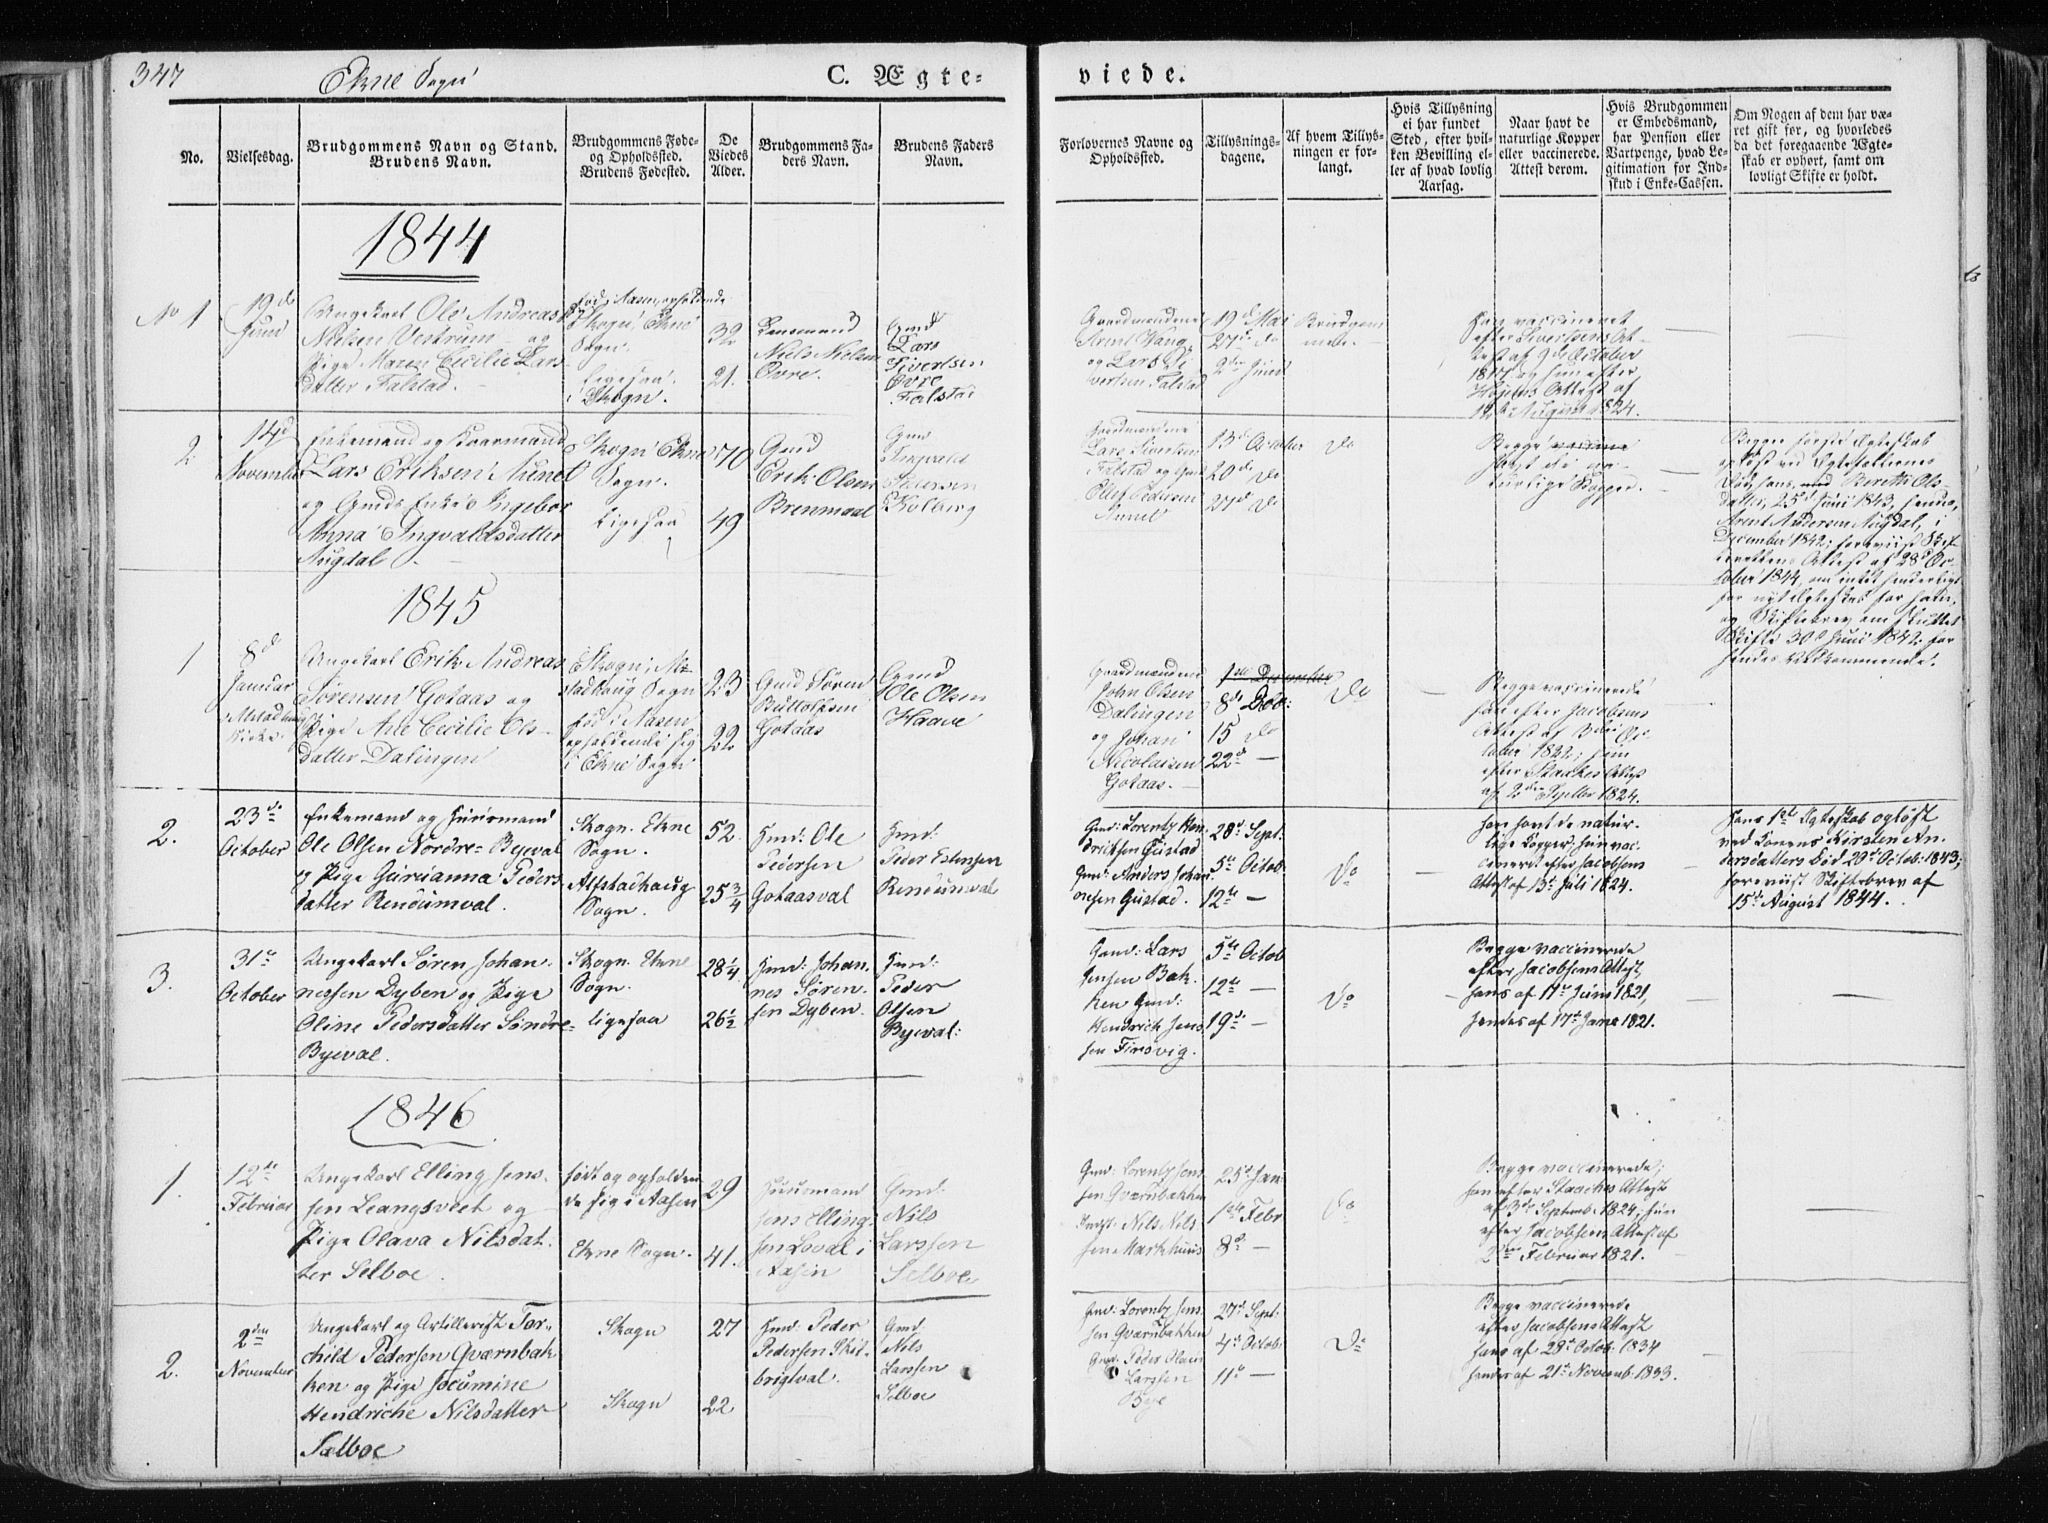 347
Ekne Sogn
C. Ægte-
viede.
No.
Vielsesdag.
Brudgommens Navn og Stand.
Brudens Navn.
Brudgommens Føde-
og Opholdssted.
Brudens Fødested.
De
Viedes
Alder.
Brudgommens Fa-
ders Navn.
Brudens Faders
Navn.
Forlovernes Navne og
Opholdssted.
Tillysnings-
dagene.
Af hvem Tillys-
ningen er for-
langt.
Hvis Tillysning
ei har fundet
Sted, efter hvil-
ken Bevilling el-
ler af hvad lovlig
Aarsag.
Naar havt de
naturlige Kopper
eller vaccinerede.
Attest derom.
Hvis Brudgommen
er Embedsmand,
har Pension eller
Vartpenge, hvad Le-
gitimation for Ind-
skud i Enke-Cassen.
Om Nogen af dem har væ-
ret gift før, og hvorledes
da det foregaaende Ægte-
skab er ophørt, samt om
lovligt Skifte er holdt.
1844
No 1
19d
Juni
Ungekarl Ole Andreas
Nielsen Vestrum og
Pige Maren Cecilie Lars-
datter Falstad.
Fød i Aasen, opholdende
i Skogn, Ekne
Sogn.
ligesaa.
i Skogn.
32
21.
Niels Nielsen
Øvre.
Gmd
Lars
Sivertsen
Øvre
Falstad
Gaardmændene
Arnt Vang
og Lars Si-
vertsen Falstad
19d Mai
27d do
2den Juni
Brudgom-
men.
Han vaccineret
efter Sivertsens At-
test af 9de October
1817 og hun efter
Attest af
August 1824.
2
14d
November
Enkemand og Kaarmand
Lars Eriksen Munel
og Gmds Enke Ingebor
Anna Ingvaldsdatter
Nugdal
Skogn Ekne
Sogn.
ligesaa
70
49
Gmd
Erik Olsen
Brenmoal
Gmd
Ingvald
Kolberg
Gaardmændene
Lars Sivertsen
Falstad og Gmd
Ellef Pedersen
Munel
13d October
20de do
27d do
Do
Begge
havt de na-
turlige Kopper.
Begges første Ægteskab
opløst ved Ægtefællernes
Død, hans, med Beret Ols-
datter, 25d Juni 1843, hendes,
Arent Andersen Nugdal, i
December 1842; foreviist Skif-
terettens Attest af 28d Oc-
tober 1844, om intet Hinderligt
for nyt Ægteskab for ham,
og Skiftebrev om sluttet
Skifte 30d Juni 1842 for
hendes Vedkommende.
1845
1
8d
Januar
Alstadhaug
Kirke.
Ungekarl Erik Andreas
Sørensen Gotaas og
Pige Arle Cecilie Ols-
datter Dalingen
Skogn, Al-
stadhoug Sogn
fød i Aasen,
opholdende sig
i Ekne Sogn
23
22
Gmd Søren
Gotaas
Gmd
Ole Olsen
Haave
Gaardmændene
John Olsen
Dalingen
og Johan
Nicolaisen
Gotaas.
1ste December
8de Do:
15 do
22d —
Do
Begge vaccinerede
han efter Jacobsens
Attest af 3die Oc-
tober 1822; hun
efter Staaches Attest
af 2den Septbr 1824.
2.
23de
October
Enkemand og Huusmand
Ole Olsen Nordre Byeval
og Pige Gurianna Peders-
datter Rendumval.
Skogn. Ekne
Sogn.
Alstadhaug
Sogn.
52.
25 3/4
Hmd: Ole
Pedersen
Gotaasval
Hmd:
Peder Estensen
Rendumval
Gmd: Lorentz Hen-
driksen Gustad
Gmd: Anders Johan-
nesen Gustad.
28d Sept.
5te Octob.
12te —
Do
Han havt de natur-
lige Kopper, hun vac-
cineret efter Jacobsens
Attest af 13de Juli 1824.
Hans 1ste Ægteskab opløst
ved Konens Kirsten An-
dersdatters Død 29de Octob. 1843;
foreviist Skiftebrev af
15de August 1844.
3.
31te
October
Ungekarl Søren Johan-
nessen Dyben og Pige
Oline Pedersdatter Søndre
Byeval.
Skogn. Ekne
Sogn.
ligesaa
28 1/4
26 1/2
Hmd: Johan-
nes Søren-
sen Dyben.
Hmd:
Peder
Olsen
Byeval:
Gmd: Lars
Jensen Bak-
ken Gmd:
Hendrick Jens-
sen Finsvig.
5te Octob
12te —
19de —
Do
Begge vaccinerede
efter Jacobsens Attest,
hans af 17de Juni 1821,
hendes af 17de Jan 1821.
1846
1.
12te
Februar
Ungekarl Elling Jens-
sen Leangsveet og
Pige Olava Nilsdat-
ter Selboe.
født og opholden-
de sig i Aasen
Ekne Sogn.
29
41.
Huusmand
Jens Elling-
sen Loval i
Aasen
Gmd:
Nils
Larssen
Selboe
Gmd: Lorentz Jens-
sen Qværnbakken
Nils Nils-
sen Markhuus
25d Jan
1ste Febr
8d —
Do
Begge vaccinerede;
han efter Staaches Attest
af 3de Septemb. 1824; hun
efter Jacobsens Attest af
2den Februar 1821.
2.
2den
November
Ungekarl og Artillerist Tor-
child Pedersen Qværnbak-
ken og Pige Jocumine
Hendriche Nilsdatter
Sælboe
Skogn
Skogn
27
22
Hmd. Peder
Pedersen Skid-
brigtval.
Gmd.
Nils
Larssen
Selboe
Gmd: Lorentz Jens-
sen Qværnbakken
Gmd: Peder Olaus
Larssen
Bye
27d Sept:
4de Octob:
11te —
Do
Begge vaccinerede
efter Jacobsens Attest
hans af 28de Octob: 1834
hendes af 21de Novemb. 1833.